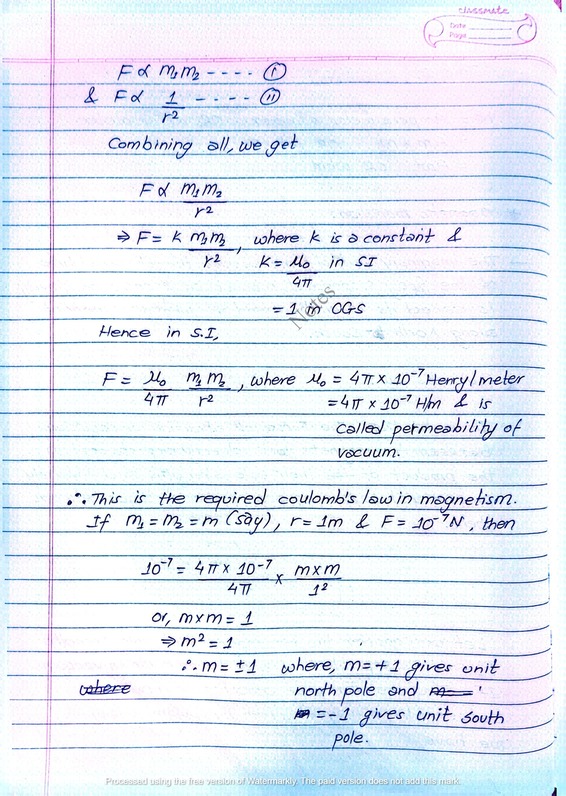 classmate
Date
Page
F ∝ m₁m₂ ---- (I)
& F ∝ 1/r² ---- (II)
Combining all, we get
F ∝ m₁m₂/r²
⇒ F = K m₁m₂/r², where K is a constant &
K = μ₀/4π in SI
= 1 in CGS
Notes
Hence in S.I,
F = μ₀/4π m₁m₂/r², where μ₀ = 4π × 10⁻⁷ Henry/meter
= 4π × 10⁻⁷ H/m & is
called permeability of
vacuum.
∴ This is the required coulomb's law in magnetism.
If m₁ = m₂ = m (say), r = 1m & F = 10⁻⁷N, then
10⁻⁷ = 4π × 10⁻⁷/4π × m×m/1²
or, m×m = 1
⇒ m² = 1
∴ m = ±1 where, m = +1 gives unit
where north pole and
m = -1 gives unit south
pole.
Processed using the free version of Watermarkly. The paid version does not add this mark.